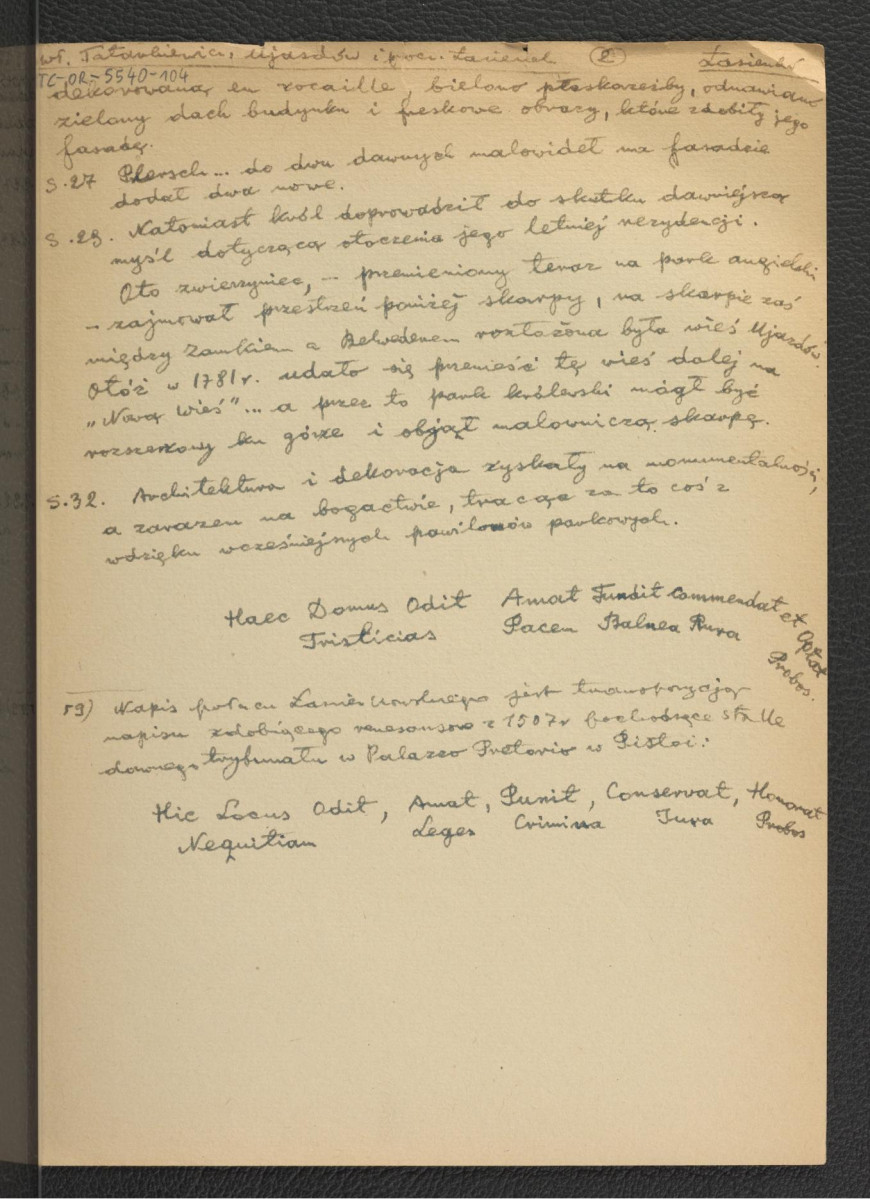 Wł. Tatarkiewicz, Ujazdów i pocz. Łazienek (2) Łazienki
TC-OR-5540-104
dekorowaną en rocaille, bielono płaskorzeźby, odnawiano
zielony dach budynku i freskowe obrazy, które zdobiły jego
fasadę.
S.27 Plersch... do dwu dawnych malowideł na fasadzie
dodał dwa nowe.
S.29. Natomiast król doprowadził do skutku dawniejszą
myśl dotyczącą otoczenia jego letniej rezydencji.
Oto zwierzyniec, – przemieniony teraz na park angielski
– zajmował przestrzeń poniżej skarpy, na skarpie zaś
między Zamkiem a Belwederem rozłożona była wieś Ujazdów.
Otóż w 1781 r. udało się przenieść tę wieś dalej na
"Nową Wieś"... a przez to park królewski mógł być
rozszerzony ku górze i objął malowniczą skarpę.
S.32. Architektura i dekoracja zyskały na monumentalności,
a zarazem na bogactwie, tracąc za to coś z
wdzięku wcześniejszych pawilonów parkowych.
Haec Domus Odit Amat Fundit Commendat et Optat
Tristicias Pacem Balnea Rura Probos.
59) Napis pałacu Łazienkowskiego jest transpozycją
napisu zdobiącego renesansowe z 1507 r pochodzące stalle
dawnego trybunału w Palazzo Pretorio w Pistoi:
Hic Locus Odit, Amat, Punit, Conservat, Honorat
Nequitiam Leges Crimina Jura Probos